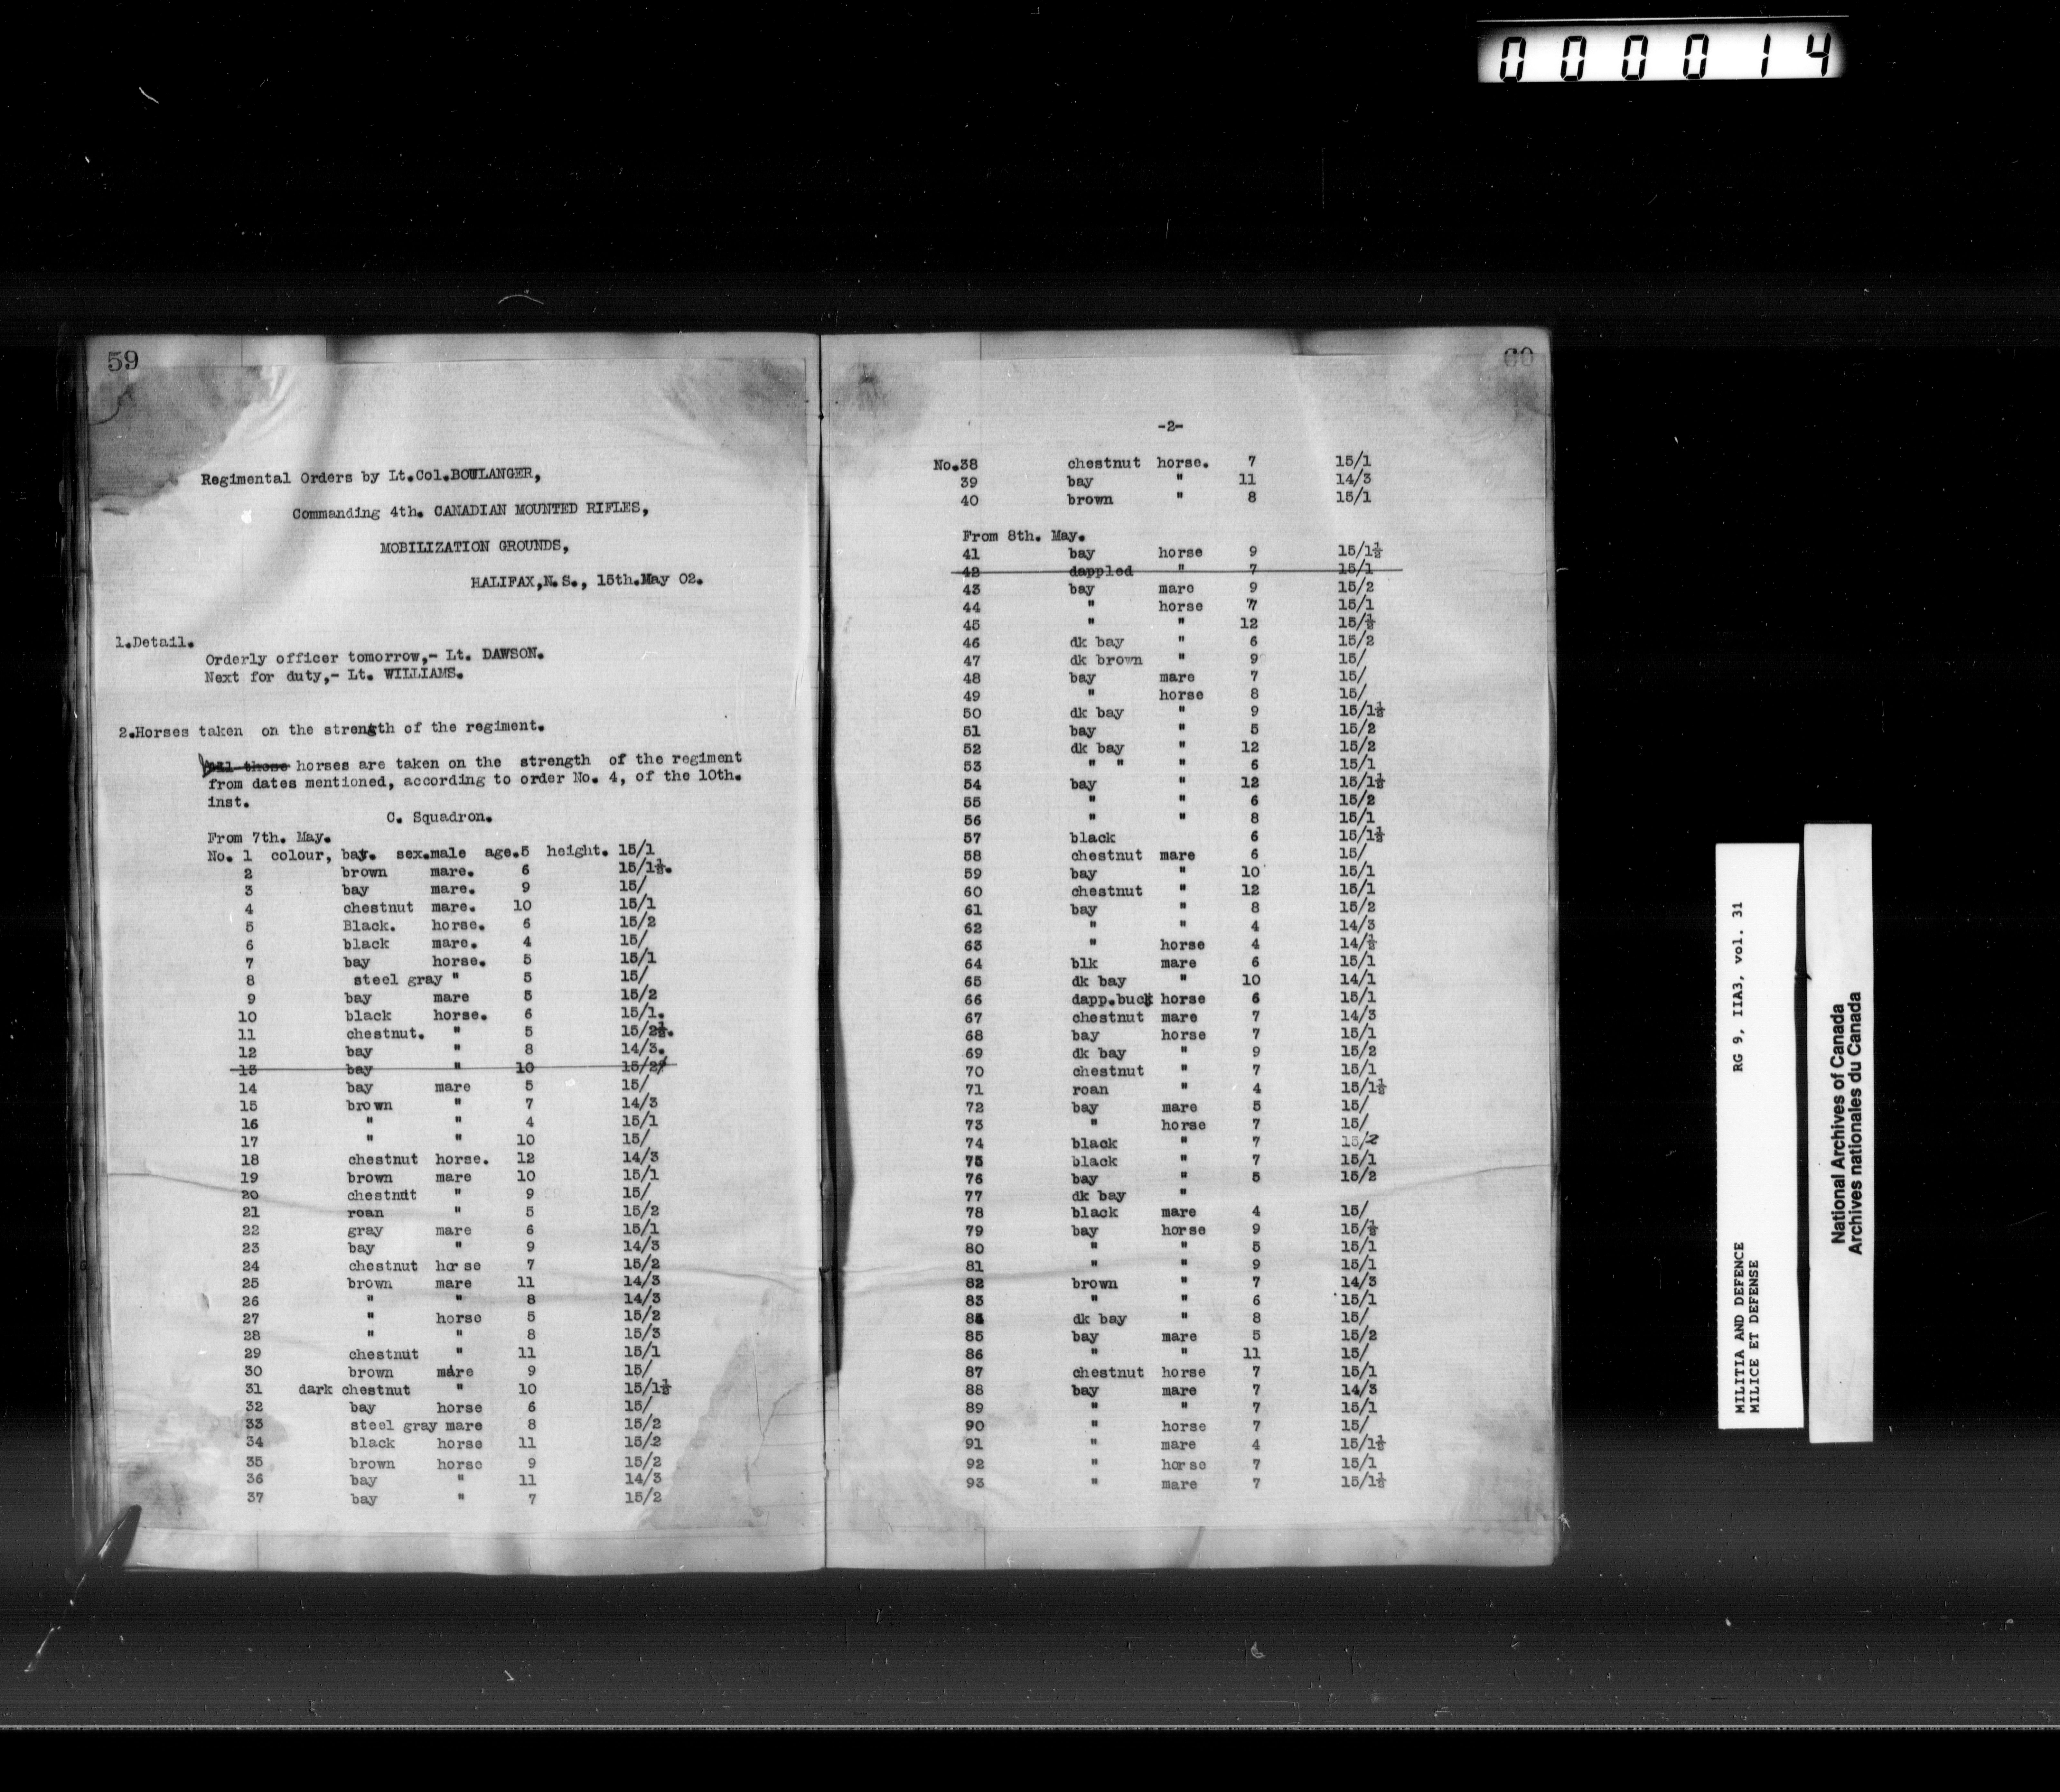 000014
59
Regimental Orders by Lt.Col.BOULANGER,
Commanding 4th. CANADIAN MOUNTED RIFLES,
MOBILIZATION GROUNDS,
HALIFAX,N.S., 15th.May 02.
1.Detail.
Orderly officer tomorrow,- Lt. DAWSON.
Next for duty,- Lt. WILLIAMS.
2.Horses taken on the strength of the regiment.
horses are taken on the strength of the regiment
from dates mentioned, according to order No. 4, of the 10th.
inst.
C. Squadron.
From 7th. May.
No. 1 colour, bay. sex.male age.5 height. 15/1
2 brown mare. 6 15/1½.
3 bay mare. 9 15/
4 chestnut mare. 10 15/1
5 Black. horse. 6 15/2
6 black mare. 4 15/
7 bay horse. 5 15/1
8 steel gray " 5 15/
9 bay mare 5 15/2
10 black horse. 6 15/1.
11 chestnut. " 5 15/2½.
12 bay " 8 14/3.
13 bay " 10 15/2
14 bay mare 5 15/
15 brown " 7 14/3
16 " " 4 15/1
17 " " 10 15/
18 chestnut horse. 12 14/3
19 brown mare 10 15/1
20 chestnut " 9 15/
21 roan " 5 15/2
22 gray mare 6 15/1
23 bay " 9 14/3
24 chestnut horse 7 15/2
25 brown mare 11 14/3
26 " " 8 14/3
27 " horse 5 15/2
28 " " 8 15/3
29 chestnut " 11 15/1
30 brown mare 9 15/
31 dark chestnut " 10 15/1½
32 bay horse 6 15/
33 steel gray mare 8 15/2
34 black horse 11 15/2
35 brown horse 9 15/2
36 bay " 11 14/3
37 bay " 7 15/2
60
-2-
No.38 chestnut horse. 7 15/1
39 bay " 11 14/3
40 brown " 8 15/1
From 8th. May.
41 bay horse 9 15/1½
42 dappled " 7 15/1
43 bay mare 9 15/2
44 " horse 7 15/1
45 " " 12 15/½
46 dk bay " 6 15/2
47 dk brown " 9 15/
48 bay mare 7 15/
49 " horse 8 15/
50 dk bay " 9 15/1½
51 bay " 5 15/2
52 dk bay " 12 15/2
53 " " " 6 15/1
54 bay " 12 15/1½
55 " " 6 15/2
56 " " 8 15/1
57 black 6 15/1½
58 chestnut mare 6 15/
59 bay " 10 15/1
60 chestnut " 12 15/1
61 bay " 8 15/2
62 " " 4 14/3
63 " horse 4 14/½
64 blk mare 6 15/1
65 dk bay " 10 14/1
66 dapp.buck horse 6 15/1
67 chestnut mare 7 14/3
68 bay horse 7 15/1
69 dk bay " 9 15/2
70 chestnut " 7 15/1
71 roan " 4 15/1½
72 bay mare 5 15/
73 " horse 7 15/
74 black " 7 15/2
75 black " 7 15/1
76 bay " 5 15/2
77 dk bay "
78 black mare 4 15/
79 bay horse 9 15/½
80 " " 5 15/1
81 " " 9 15/1
82 brown " 7 14/3
83 " " 6 15/1
84 dk bay " 8 15/
85 bay mare 5 15/2
86 " " 11 15/
87 chestnut horse 7 15/1
88 bay mare 7 14/3
89 " " 7 15/1
90 " horse 7 15/
91 " mare 4 15/1½
92 " horse 7 15/1
93 " mare 7 15/1½
MILITIA AND DEFENCE RG 9, IIA3, vol. 31
MILICE ET DEFENSE
National Archives of Canada
Archives nationales du Canada